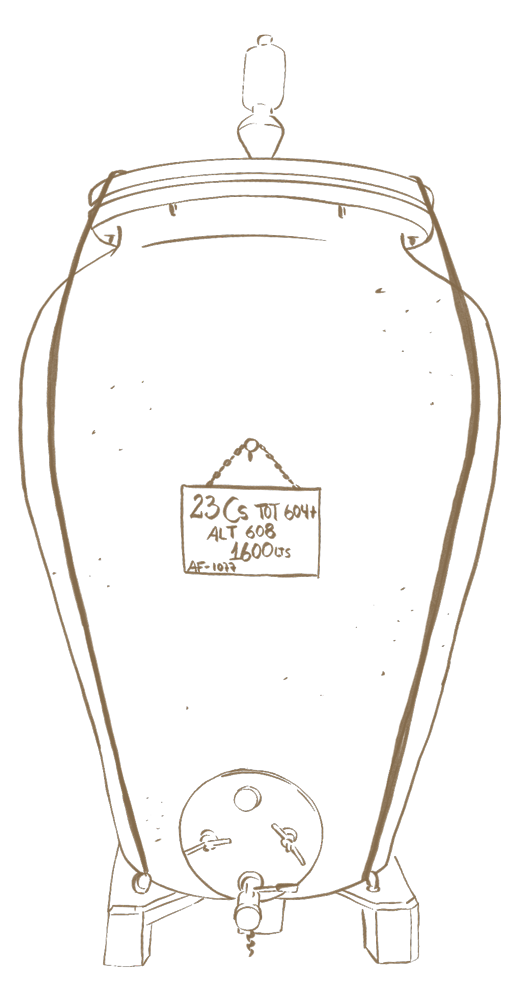 23 Cs TOT 604+
ALT 608
1600LTS
AF-1077